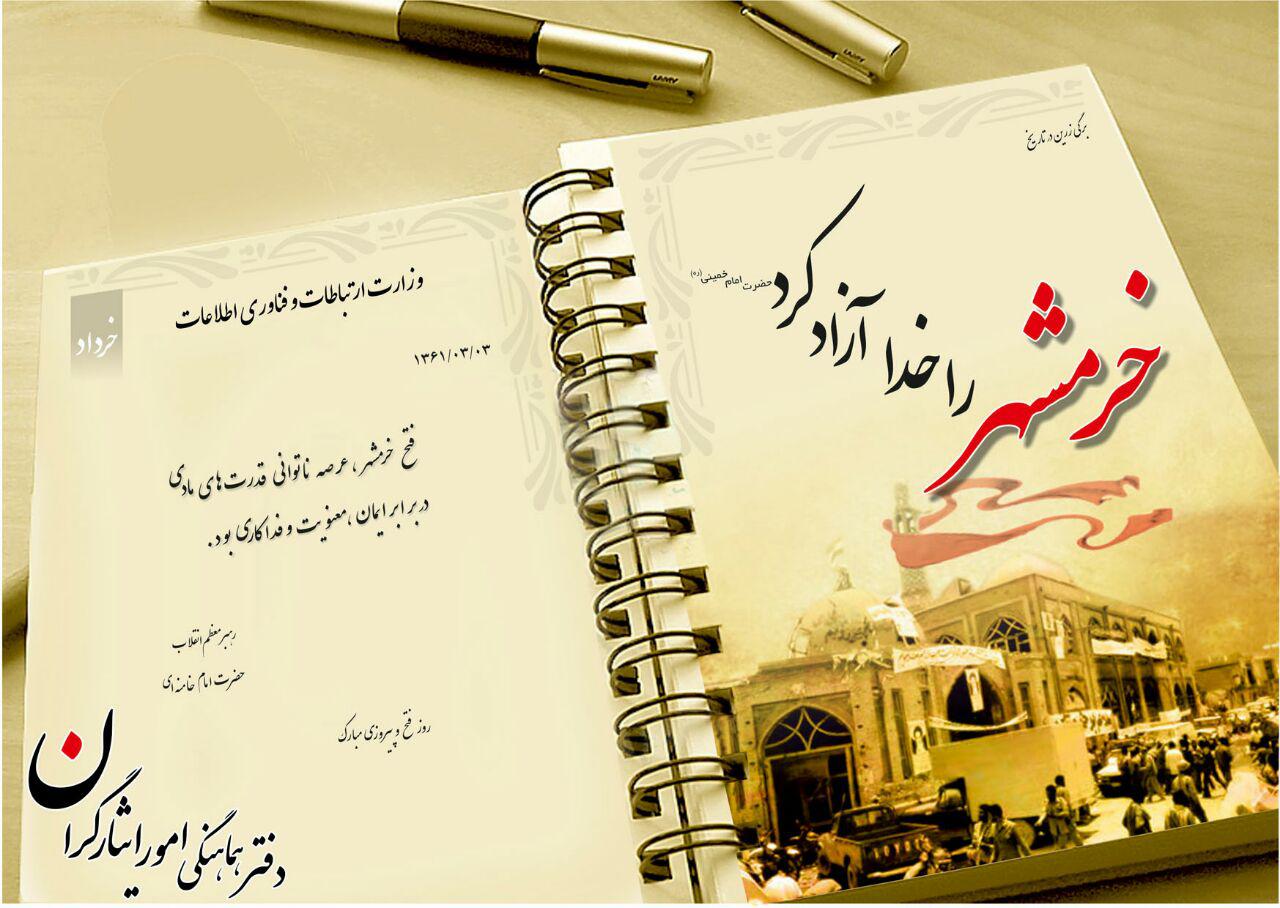 برگی زرین در تاریخ
خرمشهر را خدا آزاد کرد
حضرت امام خمینی (ره)
وزارت ارتباطات و فناوری اطلاعات
خرداد
۱۳۶۱/۰۳/۰۳
فتح خرمشهر، عرصه ناتوانی قدرت‌های مادی
در برابر ایمان، معنویت و فداکاری بود.
رهبر معظم انقلاب
حضرت امام خامنه ای
روز فتح و پیروزی مبارک
دفتر هماهنگی امور ایثارگران
LAMY
LAMY